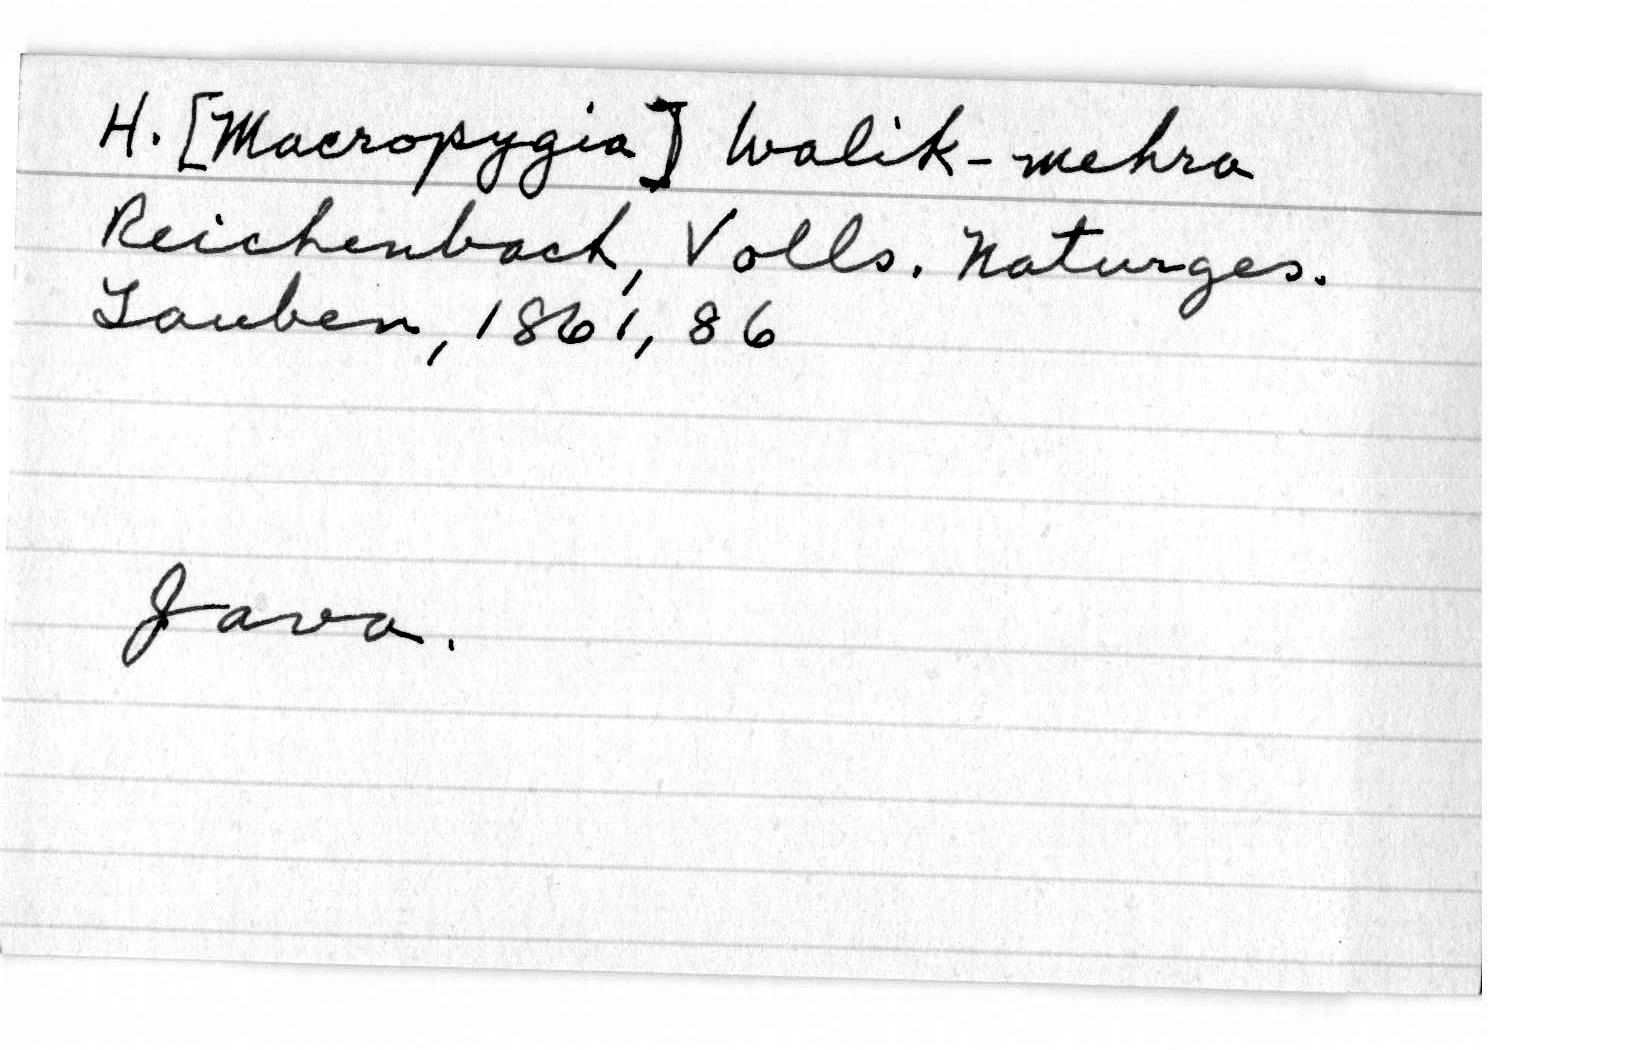 H. [Macropygia] Walik-mehra
Reichenbach, Volls. Naturges.
Tauben, 1861, 86
Java.